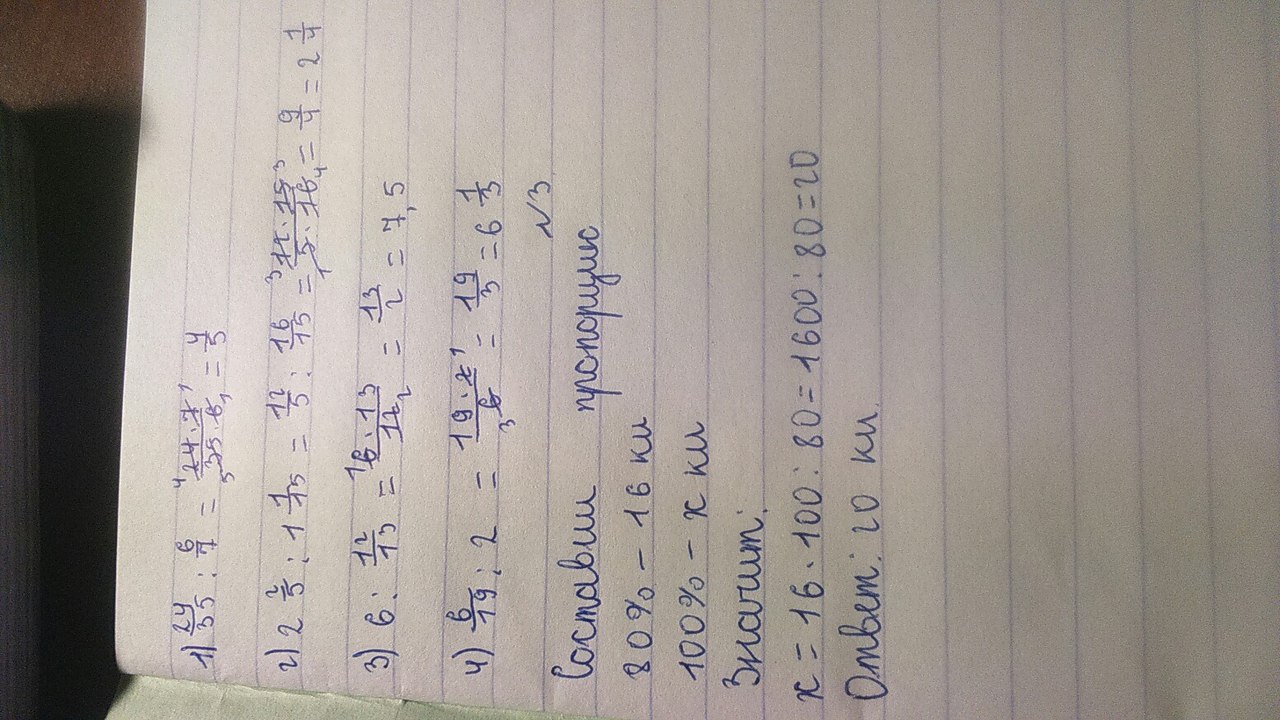 1) 24/35 : 6/7 = 24·7/35·6 = 4/5
2) 2 2/5 : 1 1/15 = 12/5 : 16/15 = 12·15/5·16 = 9/4 = 2 1/4
3) 6 : 12/13 = 6·13/12 = 13/2 = 7,5
4) 6/19 : 2 = 19·2/6 = 19/3 = 6 1/3
№3
Составим пропорцию
80% – 16 км
100% – x км
Значит:
x = 16·100:80 = 1600:80 = 20
Ответ: 20 км.